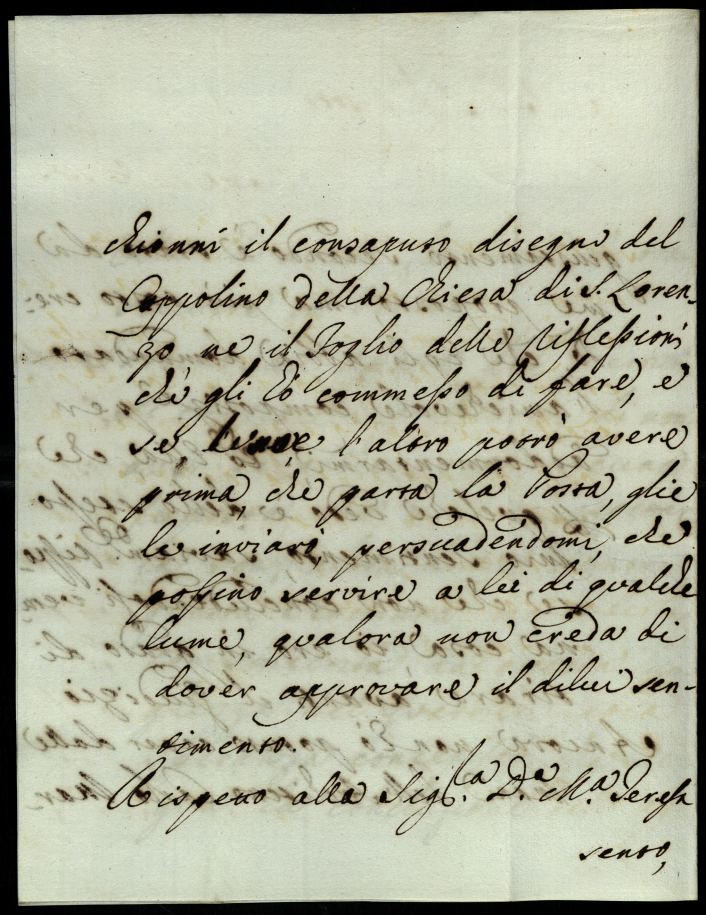 chionni il consaputo disegno del
Cuppolino della Chiesa di S. Loren-
zo ne il Foglio delle riflessioni
che gli hò commesso di fare, e
se, l'altro potrò avere
prima, che parta la Posta, glie
le inviarò, persuadendomi, che
possino servire a lei di qualche
lume, qualora non creda di
dover approvare il dilui sen-
timento.
Rispetto alla Sig.ra D.a M.a Teresa
sento,